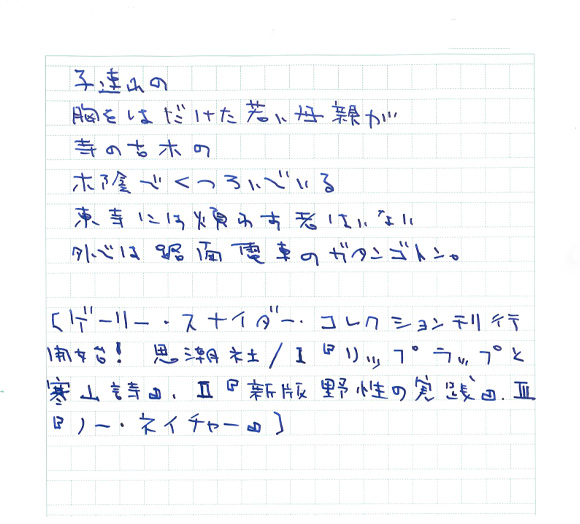 子連れの
胸をはだけた若い母親が
寺の古木の
木陰でくつろいでいる
東寺には煩わす者はいない
外では路面電車のガタンゴトン。
[ゲーリー・スナイダー・コレクション刊行
開始! 思潮社/Ⅰ『リップラップと
寒山詩』、Ⅱ『新版 野性の実践』、Ⅲ
『ノー・ネイチャー』]